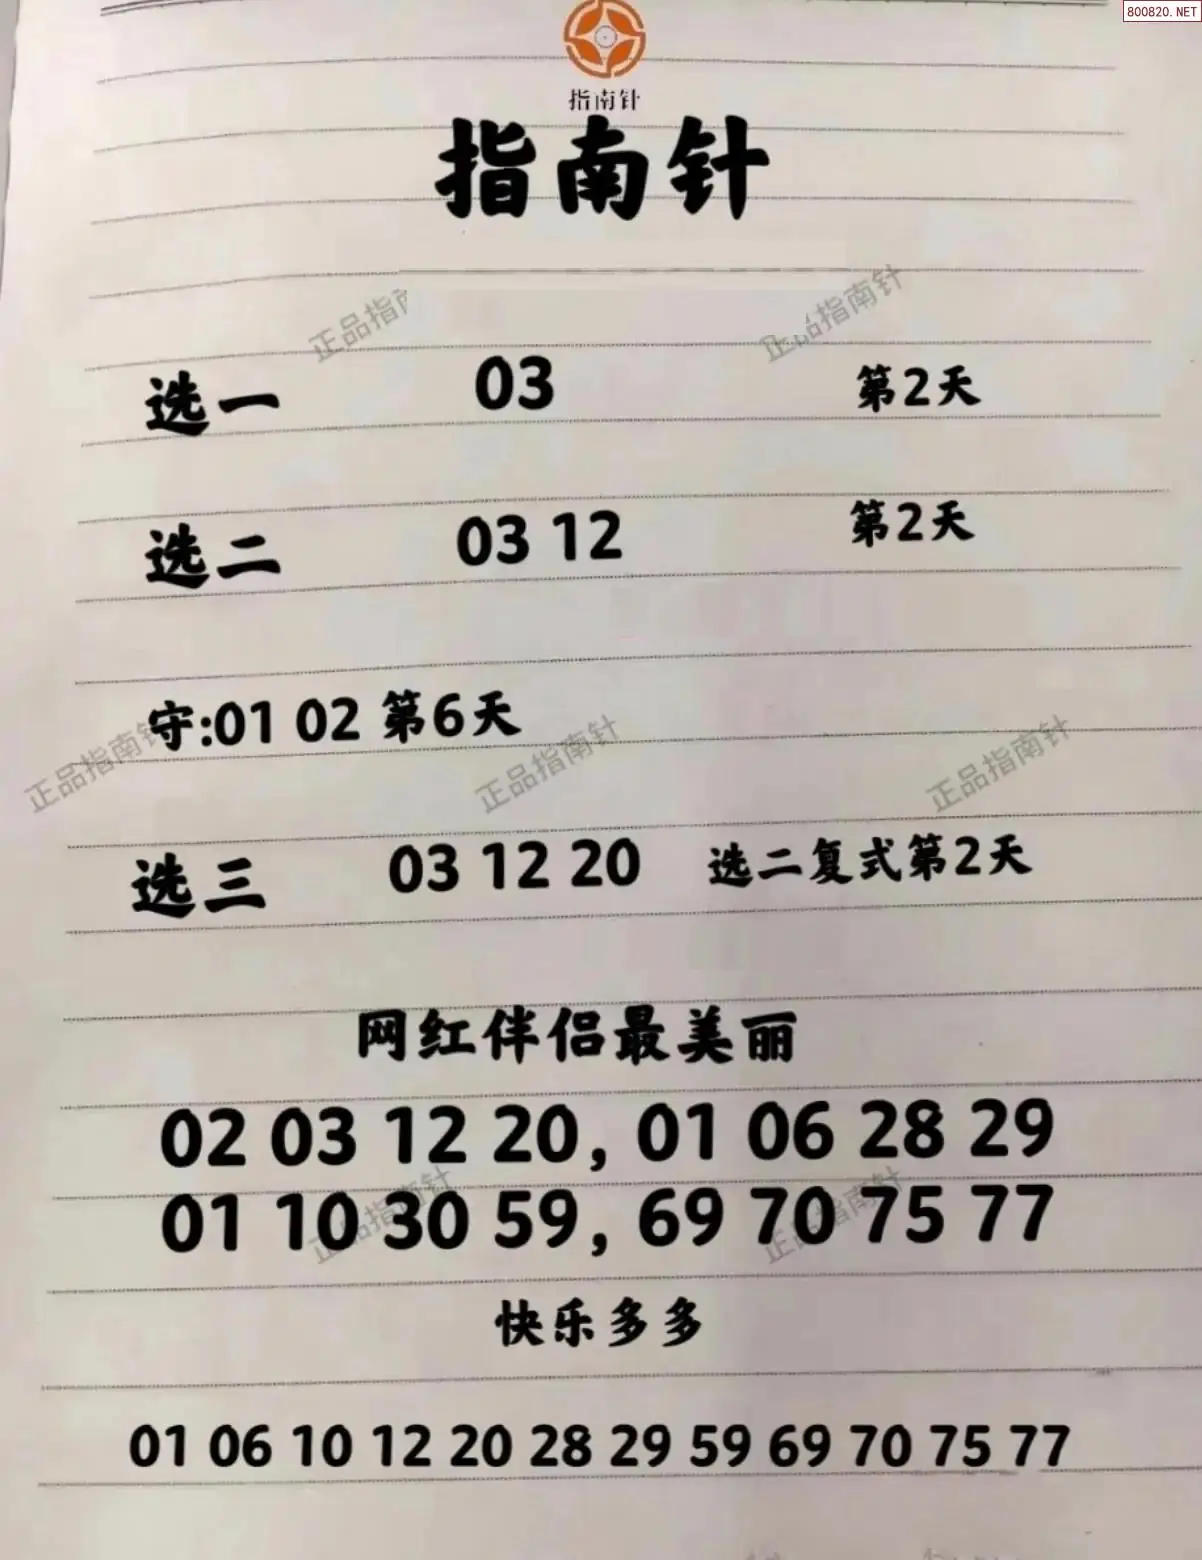 800820.NET
指南针
指南针
正品指南
正品指南针
选一 03 第2天
选二 03 12 第2天
守:01 02 第6天
正品指南针 正品指南针 正品指南针
选三 03 12 20 选二复式第2天
网红伴侣最美丽
02 03 12 20, 01 06 28 29
01 10 30 59, 69 70 75 77
正品指南针 正品指南针
快乐多多
01 06 10 12 20 28 29 59 69 70 75 77